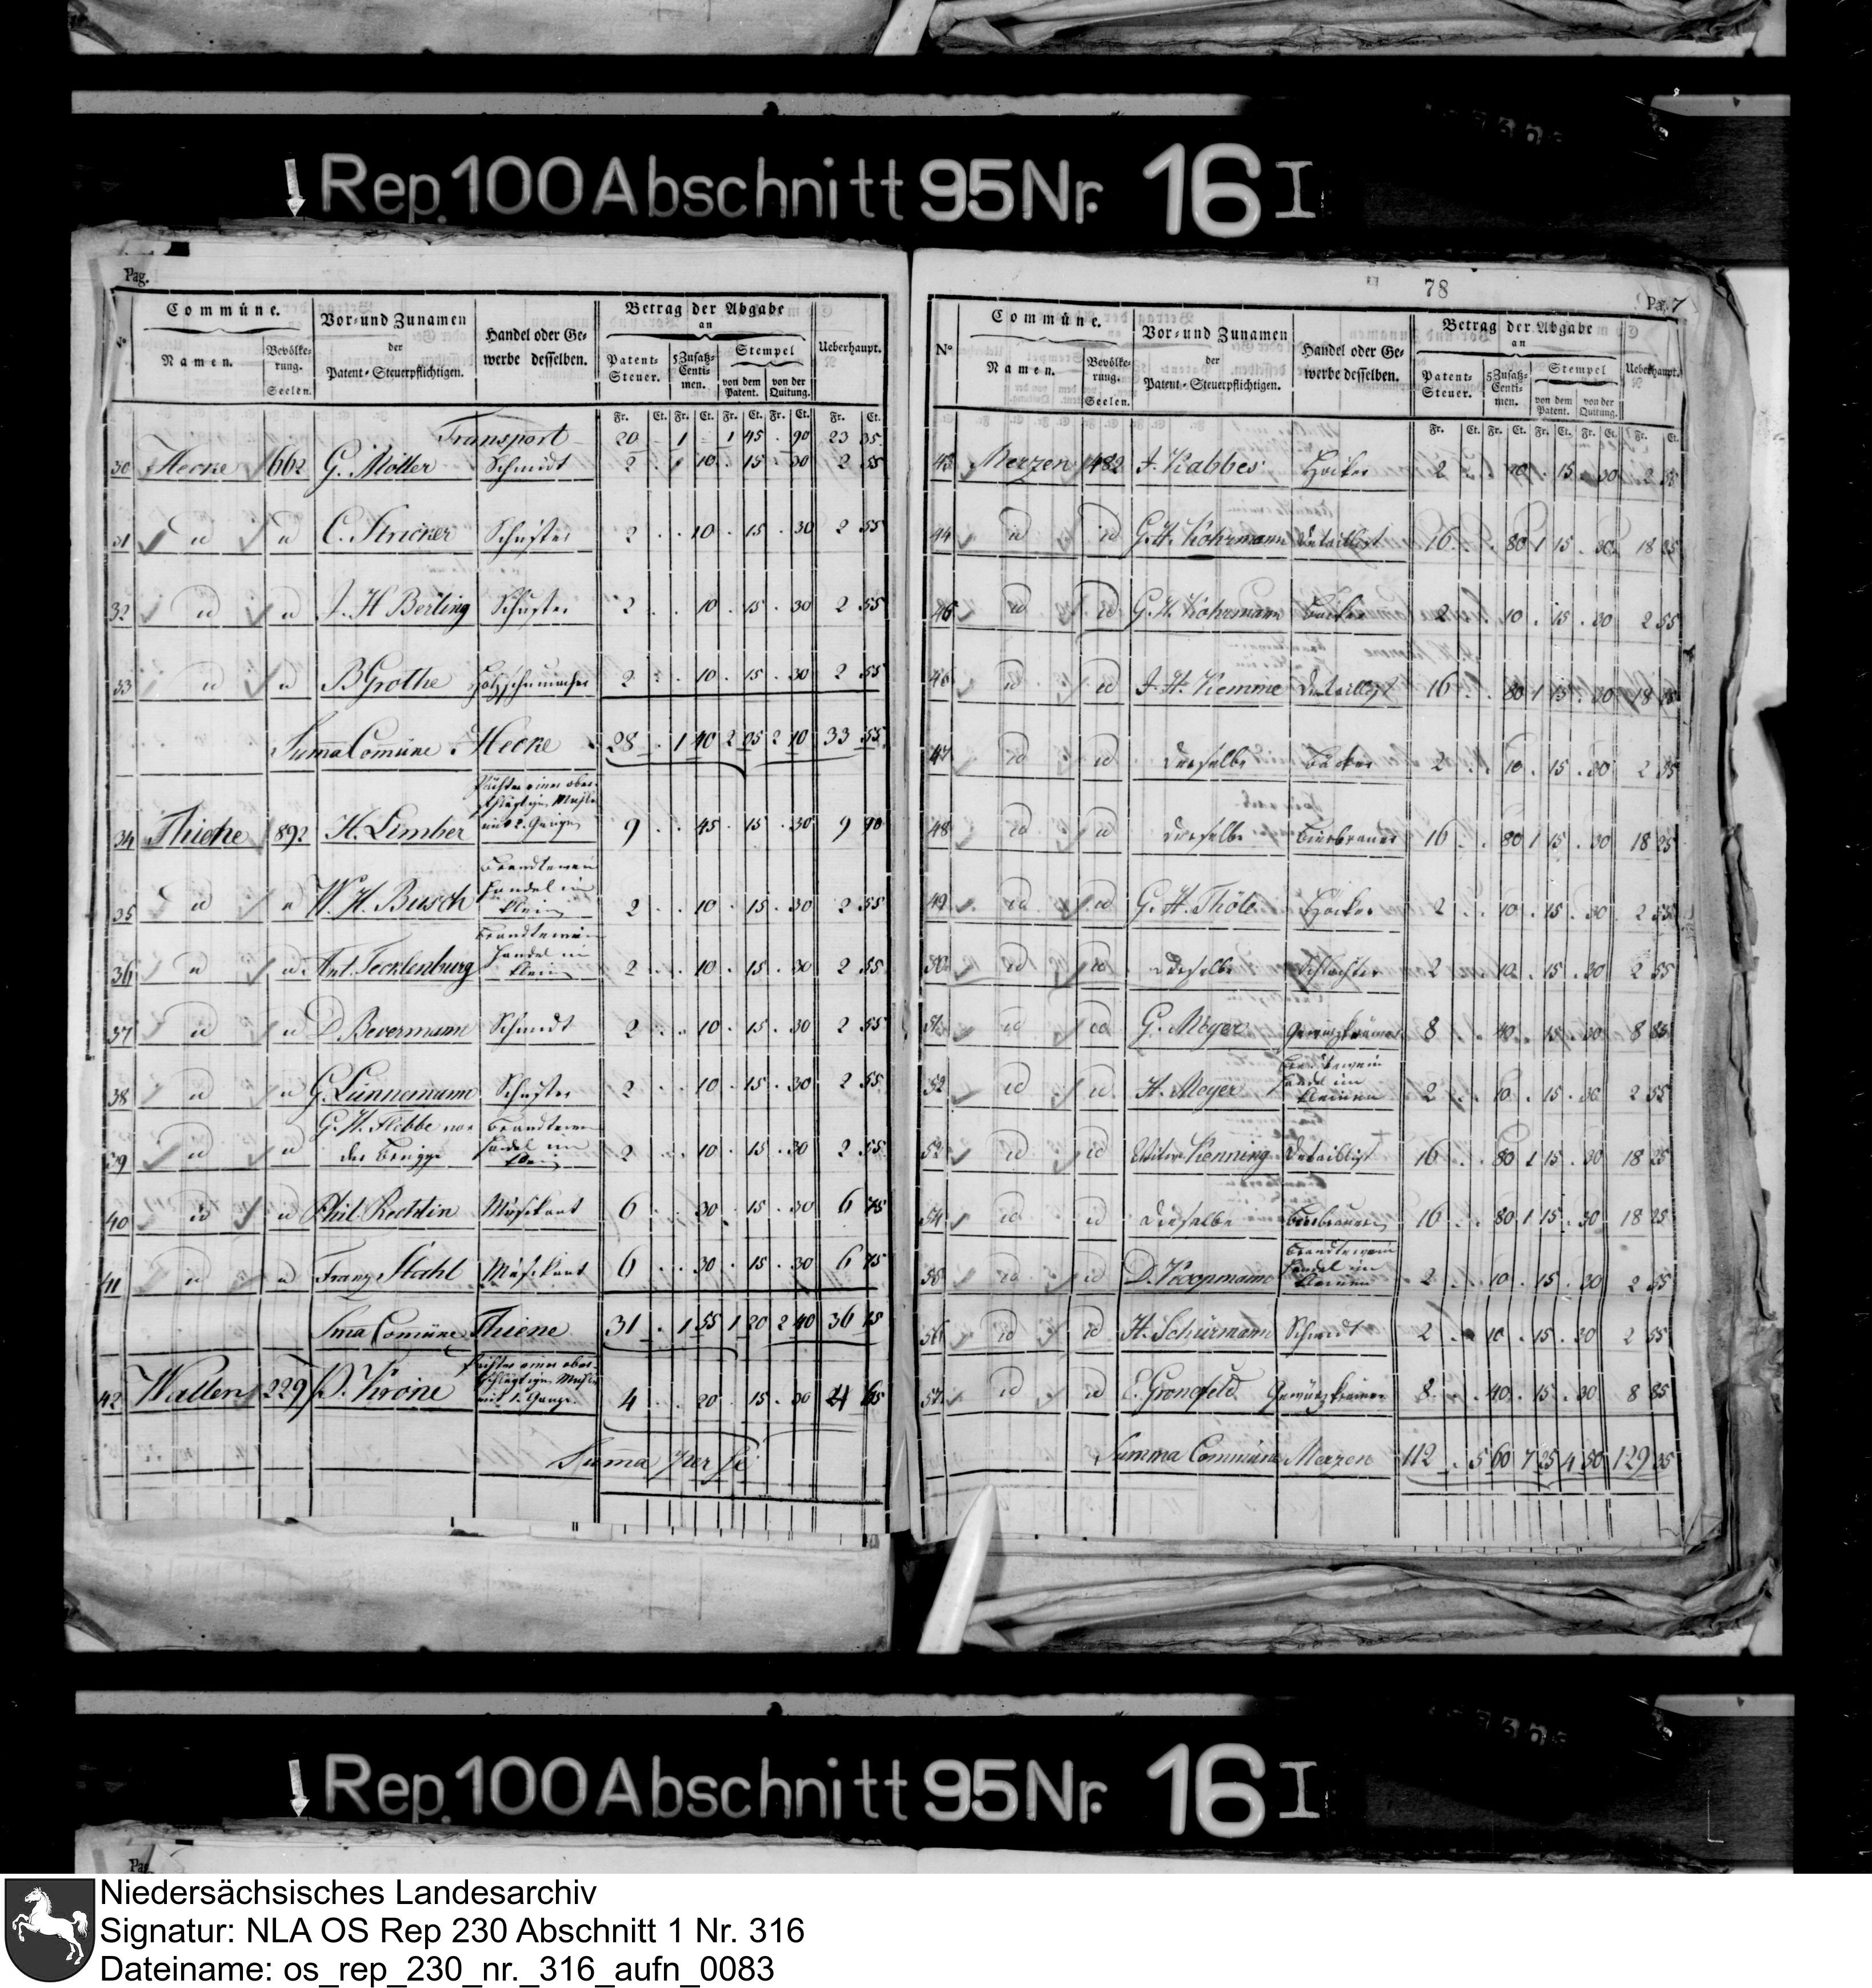 Rep. 100 Abschnitt 95 Nr. 16 I
Pag.
Commüne. Vor- und Zunamen der Patent-Steuerpflichtigen. Handel oder Gewerbe desselben. Betrag der Abgabe an Ueberhaupt.
Namen. Bevölkerung. Seelen. Patent-Steuer. 5 Zusatz-Centimen. Stempel von dem Patent. von der Quitung.
Fr. Ct. Fr. Ct. Fr. Ct. Fr. Ct. Fr. Ct.
Transport 20 . 1 - 1 45 . 90 23 35
30 Hecke 662 G. Möller Schmidt 2 . . 10 . 15 . 30 2 55
31 id id C. Stricker Schuster 2 . . 10 . 15 . 30 2 55
32 id id J. H Berling Schuster 2 . . 10 . 15 . 30 2 55
33 id id B Grothe Holzschumacher 2 . . 10 . 15 . 30 2 55
Suma Comüne Hecke 28 . 1 40 2 05 2 10 33 55
34 Thiene 892 H. Limber Pächter einer oberschlägtigen Mühle mit 2. Gänge 9 . . 45 . 15 . 30 9 90
35 id id W. H. Busch Brandtewein Handel im Klein 2 . . 10 . 15 . 30 2 55
36 id id Ant. Tecklenburg Brandtewein Handel im Klein 2 . . 10 . 15 . 30 2 55
37 id id D. Bevermann Schmidt 2 . . 10 . 15 . 30 2 55
38 id id G. Lünnemann Schuster 2 . . 10 . 15 . 30 2 55
39 id id G. H. Flebbe von der Brügge Brandtewein Handel im Klein 2 . . 10 . 15 . 30 2 55
40 id id Phil. Rechtin Musikant 6 . . 30 . 15 . 30 6 75
41 id id Franz Stahl Musikant 6 . . 30 . 15 . 30 6 75
Sma Comüne Thiene 31 . 1 55 1 20 2 40 36 15
42 Wallen 229 D. Krone Pächter einer oberschlägtigen Mühle mit 1. Gange. 4 . . 20 . 15 . 30 4 65
Suma per se
78
Pag. 7
N° Commüne. Vor- und Zunamen der Patent-Steuerpflichtigen. Handel oder Gewerbe desselben. Betrag der Abgabe an Ueberhaupt.
Namen. Bevölkerung. Seelen. Patent-Steuer. 5 Zusatz-Centimen. Stempel von dem Patent. von der Quitung.
Fr. Ct. Fr. Ct. Fr. Ct. Fr. Ct. Fr. Ct.
43 Merzen 1482 J. Kabbes Höcker 2 . . 10 . 15 . 30 2 55
44 id id G. H. Kohrmann Detaillist 16 . . 80 1 15 . 30 18 25
45 id id G. H. Kohrmann Bäcker 2 . . 10 . 15 . 30 2 55
46 id id J. H. Kemme Detaillist 16 . . 80 1 15 . 30 18 25
47 id id Derselbe Bäcker 2 . . 10 . 15 . 30 2 55
48 id id Derselbe Bierbrauer 16 . . 80 1 15 . 30 18 25
49 id id G. H. Thöle Höcker 2 . . 10 . 15 . 30 2 55
50 id id Derselbe Schlachter 2 . . 10 . 15 . 30 2 55
51 id id G. Meyer Gewürzkrämer 8 . . 40 . 15 . 30 8 85
52 id id H. Meyer Brandtewein Handel im Kleinen 2 . . 10 . 15 . 30 2 55
53 id id Witwe Kenning Detaillist 16 . . 80 1 15 . 30 18 25
54 id id Dieselbe Bierbrauer 16 . . 80 1 15 . 30 18 25
55 id id D. Koopmann Brandtewein Handel im Kleinen 2 . . 10 . 15 . 30 2 55
56 id id H. Schürmann Schmidt 2 . . 10 . 15 . 30 2 55
57 id id E. Gronefeld Gewürzkrämer 8 . . 40 . 15 . 30 8 85
Summa Commüne Merzen 112 . 5 60 7 25 4 50 129 35
Rep. 100 Abschnitt 95 Nr. 16 I
Pag.
Niedersächsisches Landesarchiv
Signatur: NLA OS Rep 230 Abschnitt 1 Nr. 316
Dateiname: os_rep_230_nr._316_aufn_0083